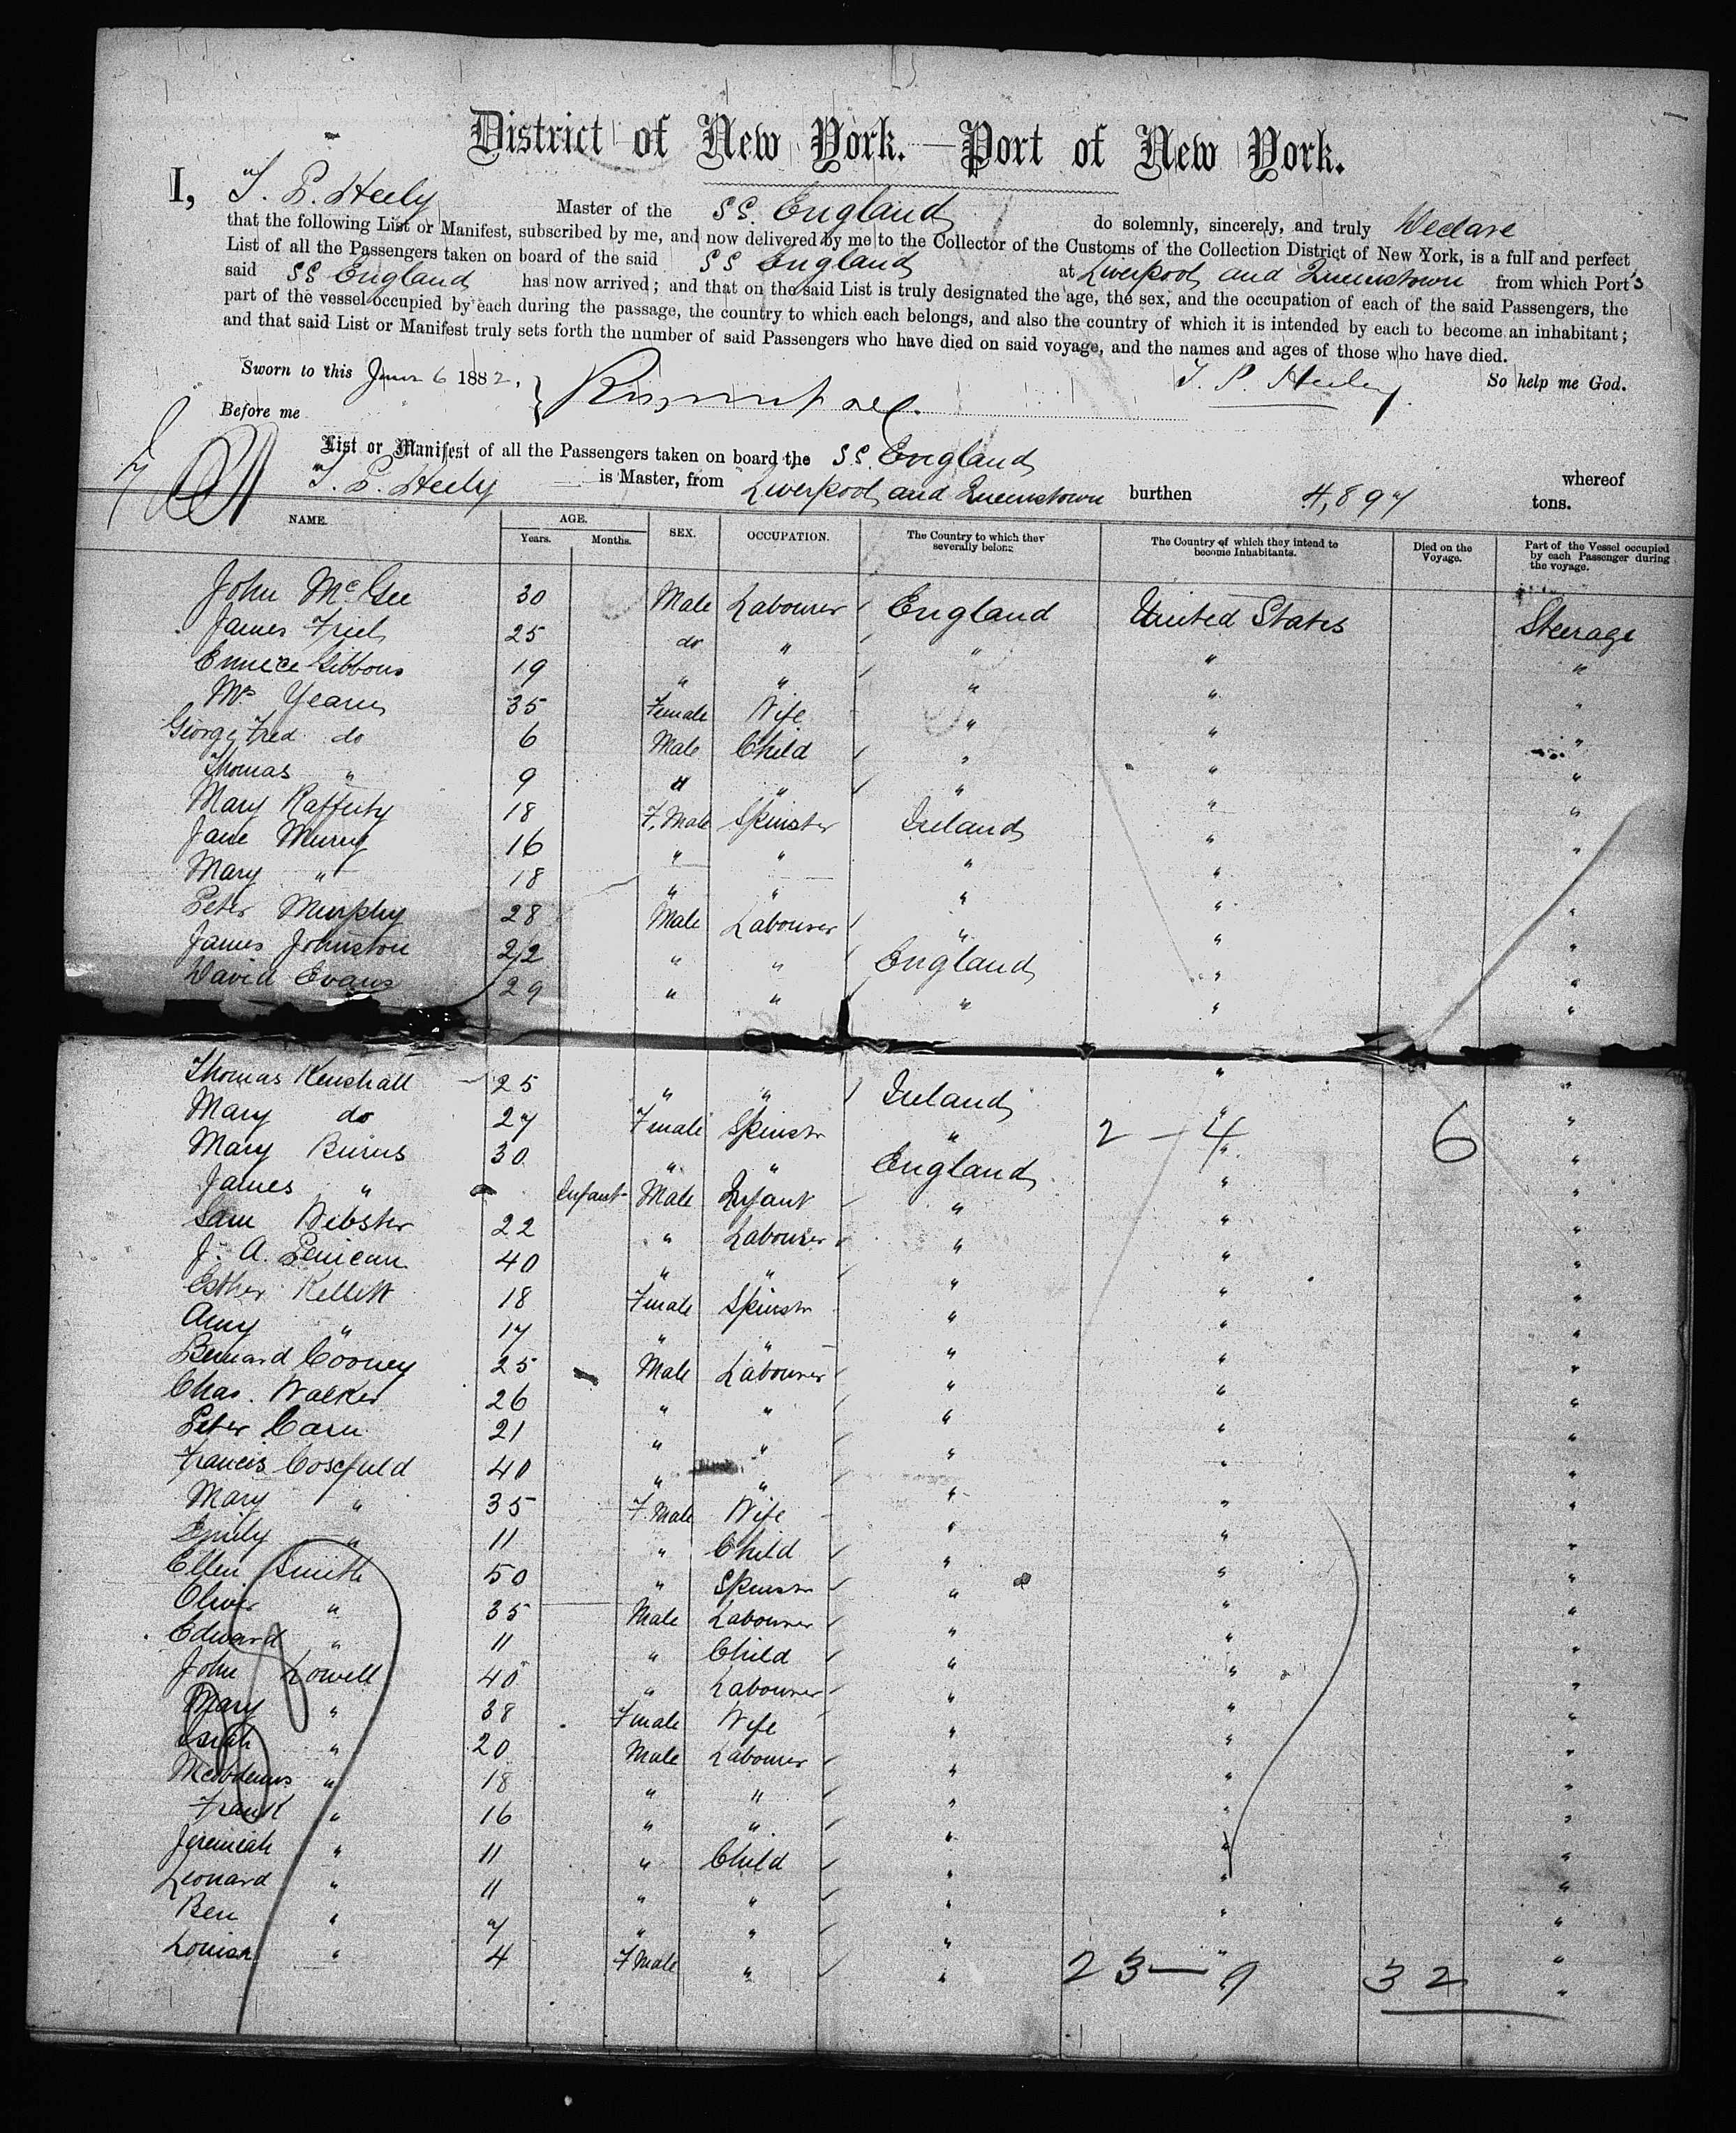 District of New York.—Port of New York.
I, T. P. Heely Master of the SS. England do solemnly, sincerely, and truly Declare
that the following List or Manifest, subscribed by me, and now delivered by me to the Collector of the Customs of the Collection District of New York, is a full and perfect
List of all the Passengers taken on board of the said SS England at Liverpool and Queenstown from which Port's
said SS England has now arrived; and that on the said List is truly designated the age, the sex, and the occupation of each of the said Passengers, the
part of the vessel occupied by each during the passage, the country to which each belongs, and also the country of which it is intended by each to become an inhabitant;
and that said List or Manifest truly sets forth the number of said Passengers who have died on said voyage, and the names and ages of those who have died.
Sworn to this June 6 1882, T. P. Heeley So help me God.
Before me
List or Manifest of all the Passengers taken on board the SS. England whereof
T. P. Heely is Master, from Liverpool and Queenstown burthen 4,897 tons.
NAME. AGE. Years. Months. SEX. OCCUPATION. The Country to which they severally belong The Country of which they intend to become Inhabitants. Died on the Voyage. Part of the Vessel occupied by each Passenger during the voyage.
John McGee 30 Male Labourer England United States Steerage
James Friel 25 do " " " "
Gibbons 19 " " " " "
Mrs 35 Female Wife " " "
George Fred do 6 Male Child " " "
Thomas " 9 " " " " "
Mary Rafferty 18 F. Male Spinster Ireland " "
Jane Murry 16 " " " " "
Mary " 18 " " " " "
Peter Murphy 28 Male Labourer " " "
James Johnston 22 " " England " "
David Evans 29 " " " " "
Thomas Kenshall 25 " " Ireland " "
Mary do 27 Female Spinstr " " "
2 — 4 6
Mary Burns 30 " " England " "
James " Infant Male Infant " " "
Sam Webster 22 " Labourer " " "
J. A. 40 " " " " "
Esther Kellett 18 Female Spinstr " " "
Amy " 17 " " " " "
Bernard Cooney 25 Male Labourer " " "
Chas. Walker 26 " " " " "
Peter Carn 21 " " " " "
Francis 40 " " " " "
Mary " 35 F. Male Wife " " "
Emily " 11 " Child " " "
Ellen Smith 50 " Spinstr " " "
Oliver " 35 Male Labourer " " "
Edward " 11 " Child " " "
John Lowell 40 " Labourer " " "
Mary " 38 Female Wife " " "
" 20 Male Labourer " " "
" 18 " " " " "
Frank " 16 " " " " "
Jeremiah " 11 " Child " " "
Leonard " 11 " " " " "
Ben " 7 " " " " "
Louisa " 4 F Male " " " "
23 — 9 32